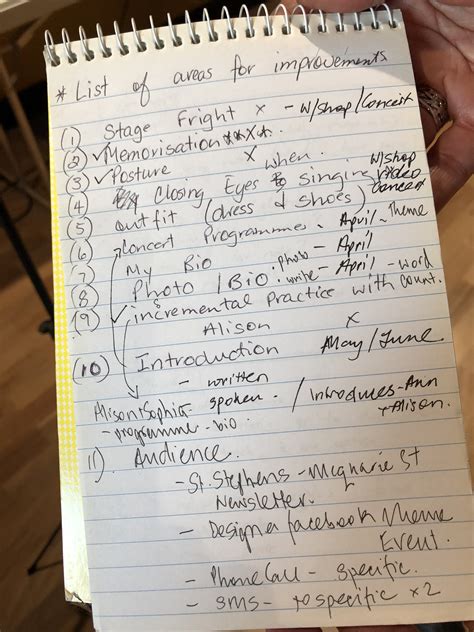 * List of areas for improvements
(1) Stage Fright x - W/shop/Concert
(2) ✓ Memorisation ****.
(3) ✓ Posture x when W/shop
(4) Closing Eyes Singing video concert
(5) outfit (dress & shoes)
(6) Concert Programme - April - Theme
(7) My Bio - April
(8) Photo / Bio: photo write - April - word count.
(9) ✓ incremental Practice with
Alison x
(10) Introduction May/June
- written
Alison:Sophia - spoken. / Introduces - Ann + Alison.
- programme - bio
11). Audience.
- St. Stephens - Mcqharie St
Newsletter.
- Design a facebook theme
Event.
- Phone Call - specific.
- SMS - to specific x2